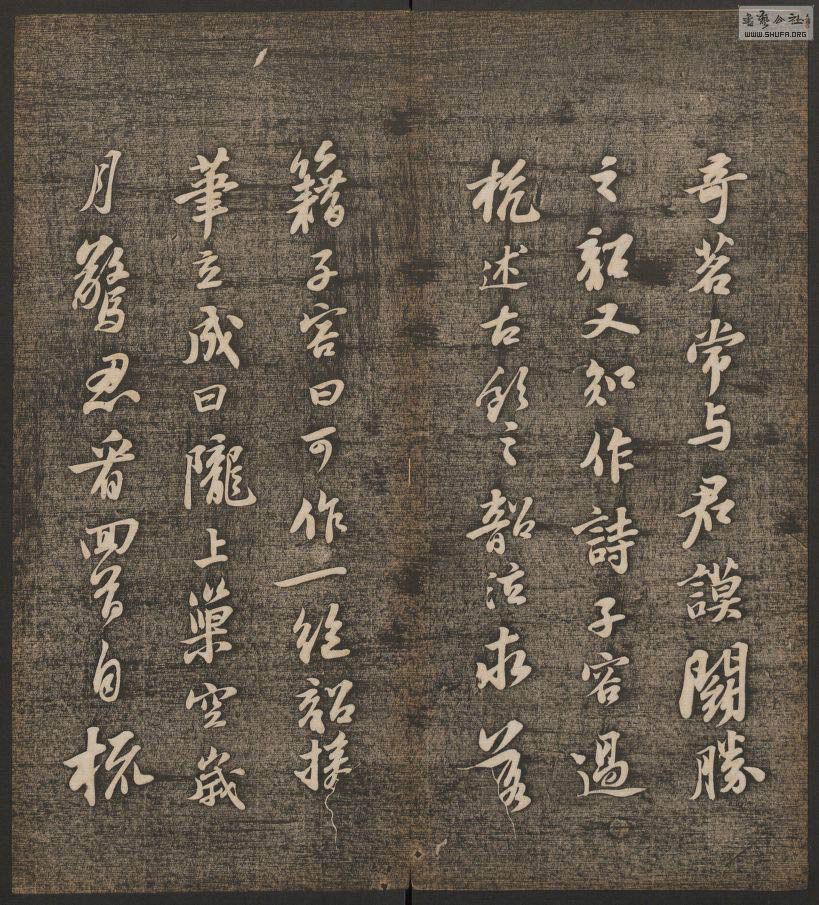 奇茗常与君謨鬪勝
之韶又知作詩子容過
杭述古飲之韶泣求落
籍子容曰可作一絶韶援
筆立成曰隴上巢空歲
月驚忍看囬首自梳
書藝公社
WWW.SHUFA.ORG